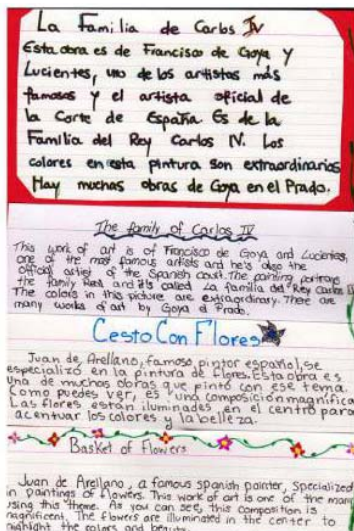 La Familia de Carlos IV
Esta obra es de Francisco de Goya y
Lucientes, uno de los artistas más
famosos y el artista oficial de
la Corte de España. Es de la
Familia del Rey Carlos IV. Los
colores en esta pintura son extraordinarios
Hay muchas obras de Goya en el Prado.
The family of Carlos IV
This work of art is of Francisco de Goya and Lucientes,
one of the most famous artists and he's also the
official artist of the Spanish court. The painting portrays
the family and it's called La familia del Rey Carlos IV
The colors in this picture are extraordinary. There are
many works of art by Goya el Prado.
Cesto Con Flores
Juan de Arellano, famoso pintor español, se
especializó en la pintura de flores. Esta obra es
una de muchas obras que pintó con ese tema.
Como puedes ver, es una composición magnífica
Las flores están iluminadas en el centro para
acentuar los colores y la belleza.
Basket of Flowers
Juan de Arellano, a famous spanish painter, Specialized
in paintings of flowers. This work of art is one of the many
using this theme. As you can see, this composition is
magnificent. The flowers are illuminated in the center to
highlight the colors and beauty.